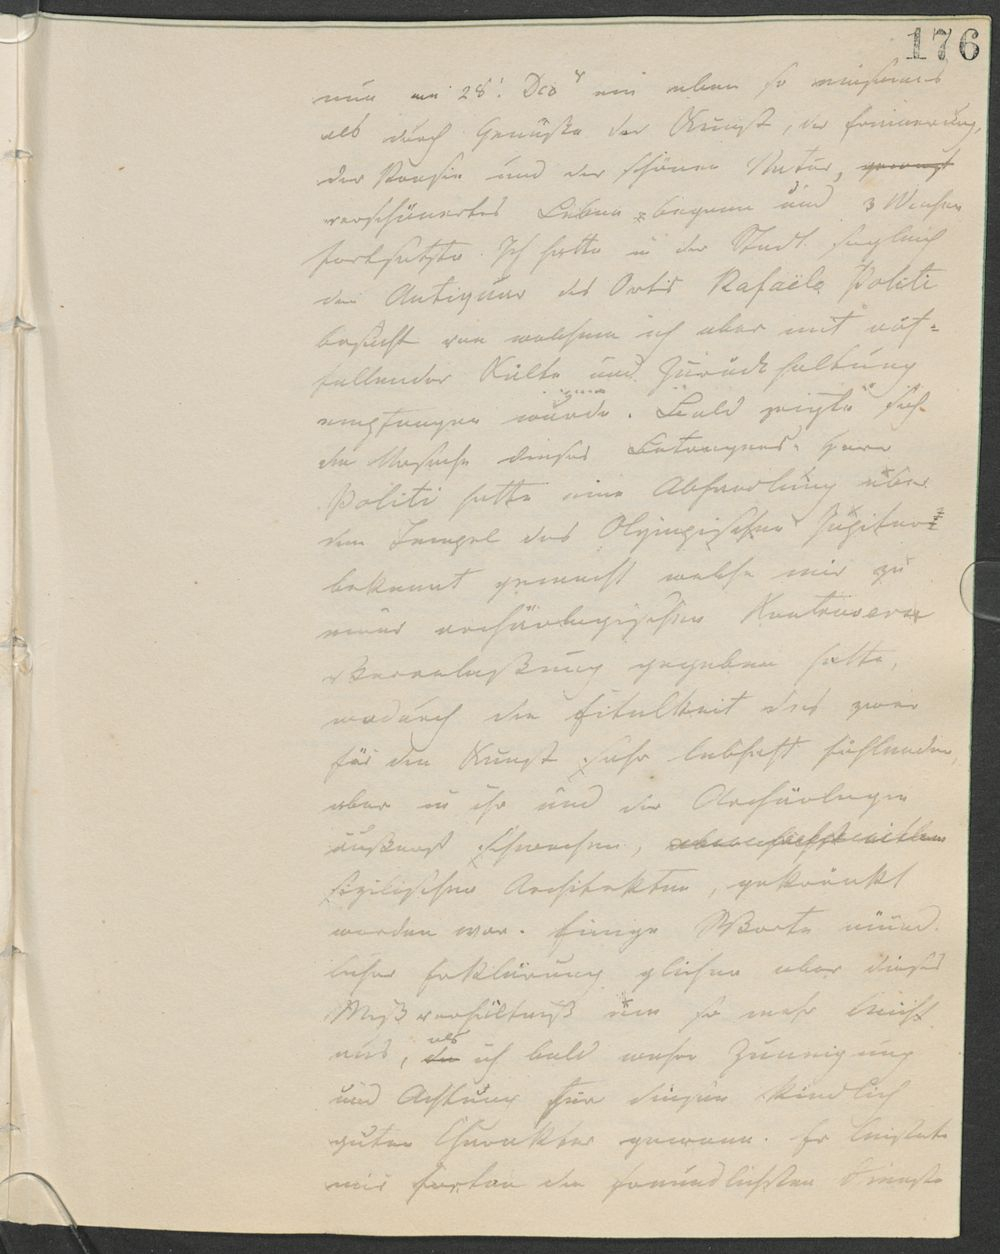 176
nun am 28'. Dec ein eben so einsames
als durch Genüße der Kunst, der Erinnerung,
der Poesie und der schönen Natur,
verschönertes Leben begann und 3 Wochen
fortsetzte. Ich hatte in der Stadt sogleich
den Antiquar des Ortes Rafaële Politi
besucht von welchem ich aber mit auf=
fallender Kälte und Zurückhaltung
empfangen wurde. Bald zeigte sich
die Ursache dieses Betragens. Herr
Politi hatte eine Abhandlung über
den Tempel des Olympischen Jupiter
bekannt gemacht welche mir zu
einer archäologischen Kontroverse
Veranlaßung gegeben hatte,
wodurch die Eitelkeit des zwar
für die Kunst sehr lebhaft fühlenden,
aber in ihr und der Archäologie
äußerst schwachen,
sizilischen Architekten, gekränkt
worden war. Einige Worte münd
licher Erklärung glichen aber dieses
Mißverhältniß um so mehr leicht
aus, als ich bald wahre Zuneigung
und Achtung für diesen kindlich
guten Charakter gewann. Er leistete
mir fortan die freundlichsten Dienste